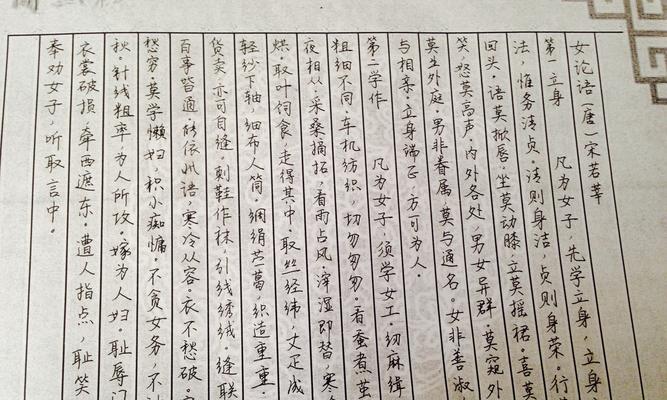 女论语(唐)宋若莘
第一立身 凡为女子,先学立身,立身
法,惟务清贞。清则身洁,贞则身荣。行莫
回头,语莫掀唇。坐莫动膝,立莫摇裙。喜莫
笑,怒莫高声。内外各处,男女异群。莫窥外
莫出外庭。男非眷属,莫与通名。女非善淑
与相亲。立身端正,方可为人。
第二学作 凡为女子,须学女工。纫麻缉
粗细不同。车机纺织,切勿匆匆。看蚕煮茧
夜相从。采桑摘拓,看雨占风。滓湿即替,寒
烘。取叶饲食,走得其中。取丝经纬,丈疋成
轻纱下轴,细布人筒。绸绢苎葛,织造重重。
货卖,亦可自缝。刺鞋作袜,引线绣绒。缝联
百事皆通。能依此语,寒冷从容。衣不愁破,家
愁穷。莫学懒妇,积小痴慵。不贪女务,不计
秋。针线粗率,为人所攻。嫁为人妇,耻辱门
衣裳破损,牵西遮东。遭人指点,耻笑
奉劝女子,听取言中。